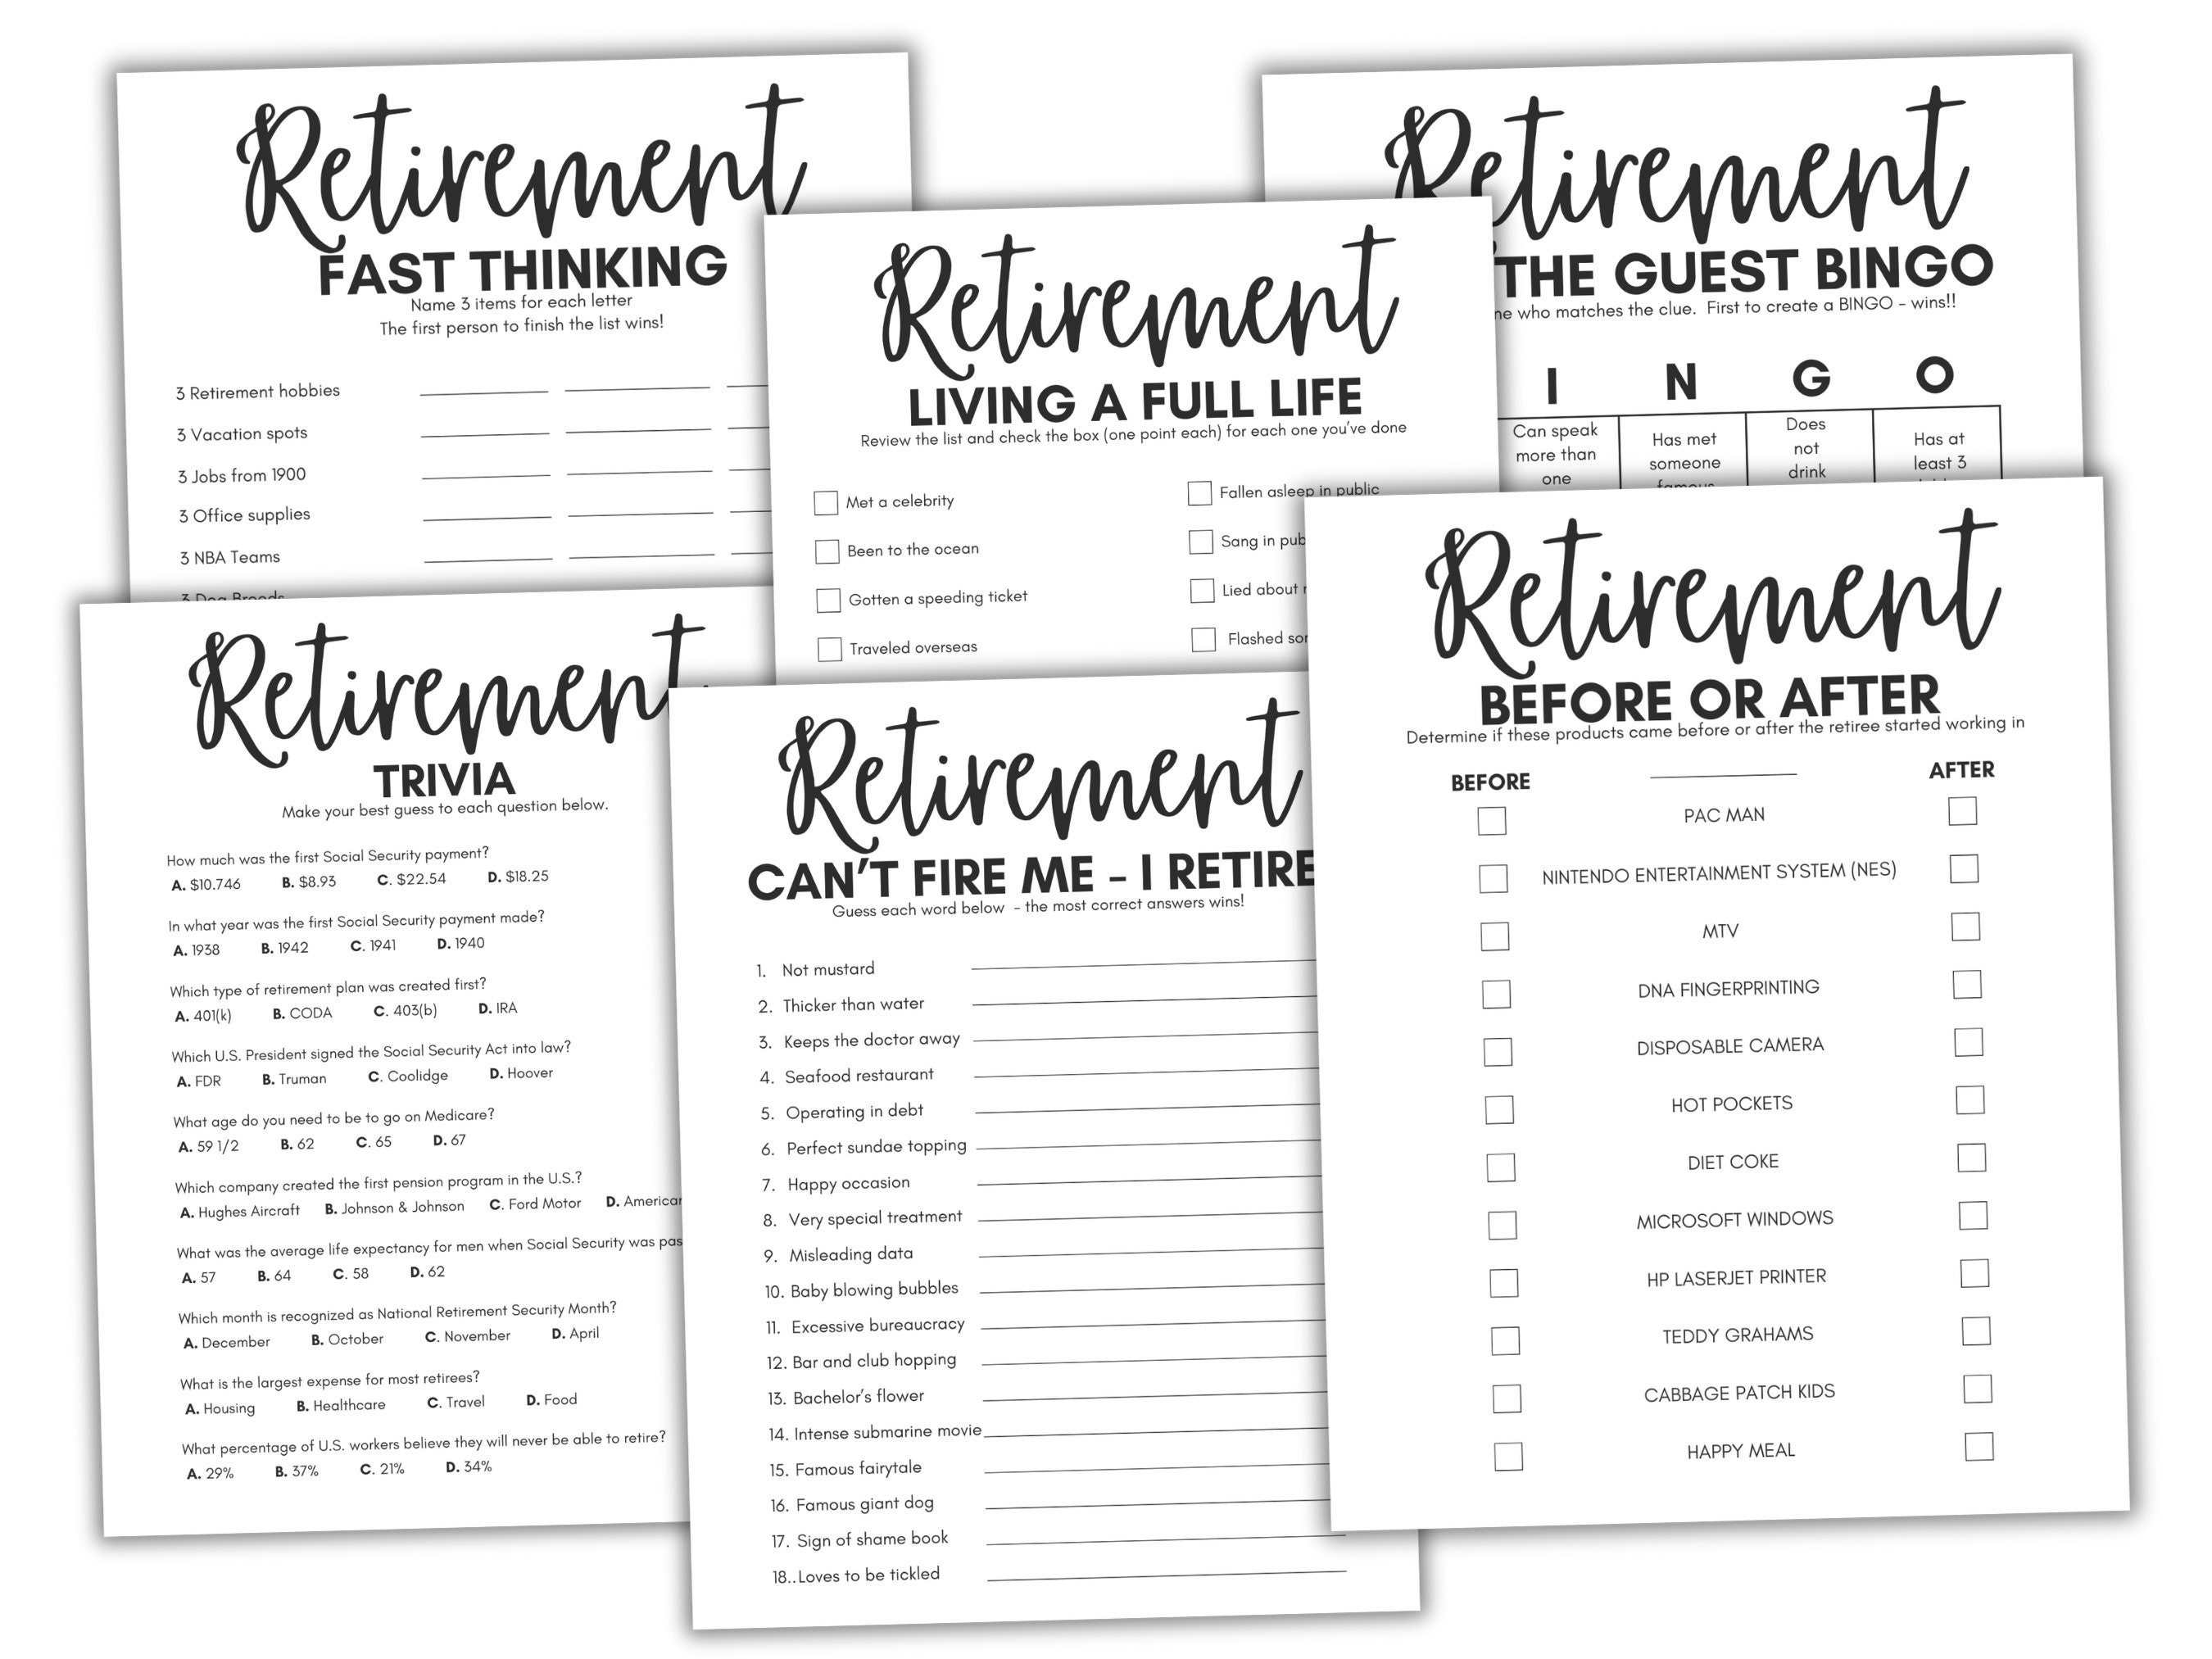 Retirement
FAST THINKING
Name 3 items for each letter
The first person to finish the list wins!
3 Retirement hobbies
3 Vacation spots
3 Jobs from 1900
3 Office supplies
3 NBA Teams
3 Dog Breeds
Retirement
LIVING A FULL LIFE
Review the list and check the box (one point each) for each one you've done
Met a celebrity
Been to the ocean
Gotten a speeding ticket
Traveled overseas
Fallen asleep in public
Sang in
Lied about
Flashed
Retirement
THE GUEST BINGO
who matches the clue. First to create a BINGO - wins!!
I N G O
Can speak more than one
Has met someone famous
Does not drink
Has at least 3
Retirement
TRIVIA
Make your best guess to each question below.
How much was the first Social Security payment?
A. $10.746 B. $8.93 C. $22.54 D. $18.25
In what year was the first Social Security payment made?
A. 1938 B. 1942 C. 1941 D. 1940
Which type of retirement plan was created first?
A. 401(k) B. CODA C. 403(b) D. IRA
Which U.S. President signed the Social Security Act into law?
A. FDR B. Truman C. Coolidge D. Hoover
What age do you need to be to go on Medicare?
A. 59 1/2 B. 62 C. 65 D. 67
Which company created the first pension program in the U.S.?
A. Hughes Aircraft B. Johnson & Johnson C. Ford Motor D. American
What was the average life expectancy for men when Social Security was
A. 57 B. 64 C. 58 D. 62
Which month is recognized as National Retirement Security Month?
A. December B. October C. November D. April
What is the largest expense for most retirees?
A. Housing B. Healthcare C. Travel D. Food
What percentage of U.S. workers believe they will never be able to retire?
A. 29% B. 37% C. 21% D. 34%
Retirement
CAN'T FIRE ME - I RETIRE
Guess each word below - the most correct answers wins!
1. Not mustard
2. Thicker than water
3. Keeps the doctor away
4. Seafood restaurant
5. Operating in debt
6. Perfect sundae topping
7. Happy occasion
8. Very special treatment
9. Misleading data
10. Baby blowing bubbles
11. Excessive bureaucracy
12. Bar and club hopping
13. Bachelor's flower
14. Intense submarine movie
15. Famous fairytale
16. Famous giant dog
17. Sign of shame book
18..Loves to be tickled
Retirement
BEFORE OR AFTER
Determine if these products came before or after the retiree started working in
BEFORE AFTER
PAC MAN
NINTENDO ENTERTAINMENT SYSTEM (NES)
MTV
DNA FINGERPRINTING
DISPOSABLE CAMERA
HOT POCKETS
DIET COKE
MICROSOFT WINDOWS
HP LASERJET PRINTER
TEDDY GRAHAMS
CABBAGE PATCH KIDS
HAPPY MEAL